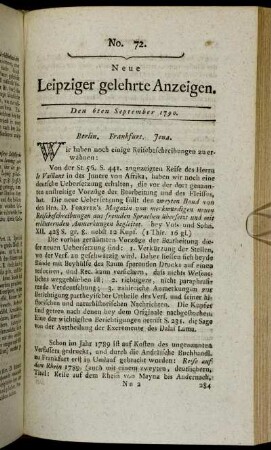 No. 72.
Neue
Leipziger gelehrte Anzeigen.
Den 6ten September 1790.
Berlin. Frankfurt. Jena.
Wir haben noch einige Reisebeschreibungen zu er-
wähnen:
Von der St. 56. S. 441. angezeigten Reise des Herrn
le Vaillant in das Innere von Afrika, haben wir noch eine
deutsche Uebersetzung erhalten, die vor der dort genann-
ten anderweitige Vorzüge der Bearbeitung und des Fleisses
hat. Die neue Uebersetzung füllt den zweyten Band von
des Hrn. D. Forsters Magazin von merkwürdigen neuen
Reisebeschreibungen aus fremden Sprachen übersetzt und mit
erläuternden Anmerkungen begleitet. bey Voss und Sohn.
XII. 408 S. gr. 8. nebst 12 Kupf. (1 Thlr. 16 gl.)
Die vorhin gerühmten Vorzüge der Bearbeitung die-
ser neuen Uebersetzung sind: 1. Verkürzung der Stellen,
wo der Verf. zu geschwätzig wird. Daher liessen sich beyde
Bände mit Beyhülfe des Raum sparenden Drucks auf einen
reduciren, und Rec. kann versichern, dass nichts Wesent-
liches weggeblieben ist; 2. richtigere, nicht paraphrasti-
rende Verdeutschung; 3. zahlreiche Anmerkungen zur
Berichtigung mancher Urtheile des Verf. und seiner hi-
storischen und naturhistorischen Nachrichten. Die Kupfer
sind getreu nach denen bey dem Originale nachgestochen.
Eine der wichtigsten Berichtigungen betrift S. 231. die Sage
von der Austheilung der Excremente des Dalai Lama.
Schon im Jahr 1789 ist auf Kosten des ungenannten
Verfassers gedruckt, und durch die Andräische Buchhandl.
zu Frankfurt erst in Umlauf gebracht worden: Reise auf
dem Rhein 1789. (auch mit einem zweyten, deutlichern,
Titel: Reise auf dem Rhein von Maynz bis Andernach.
N n 2
284